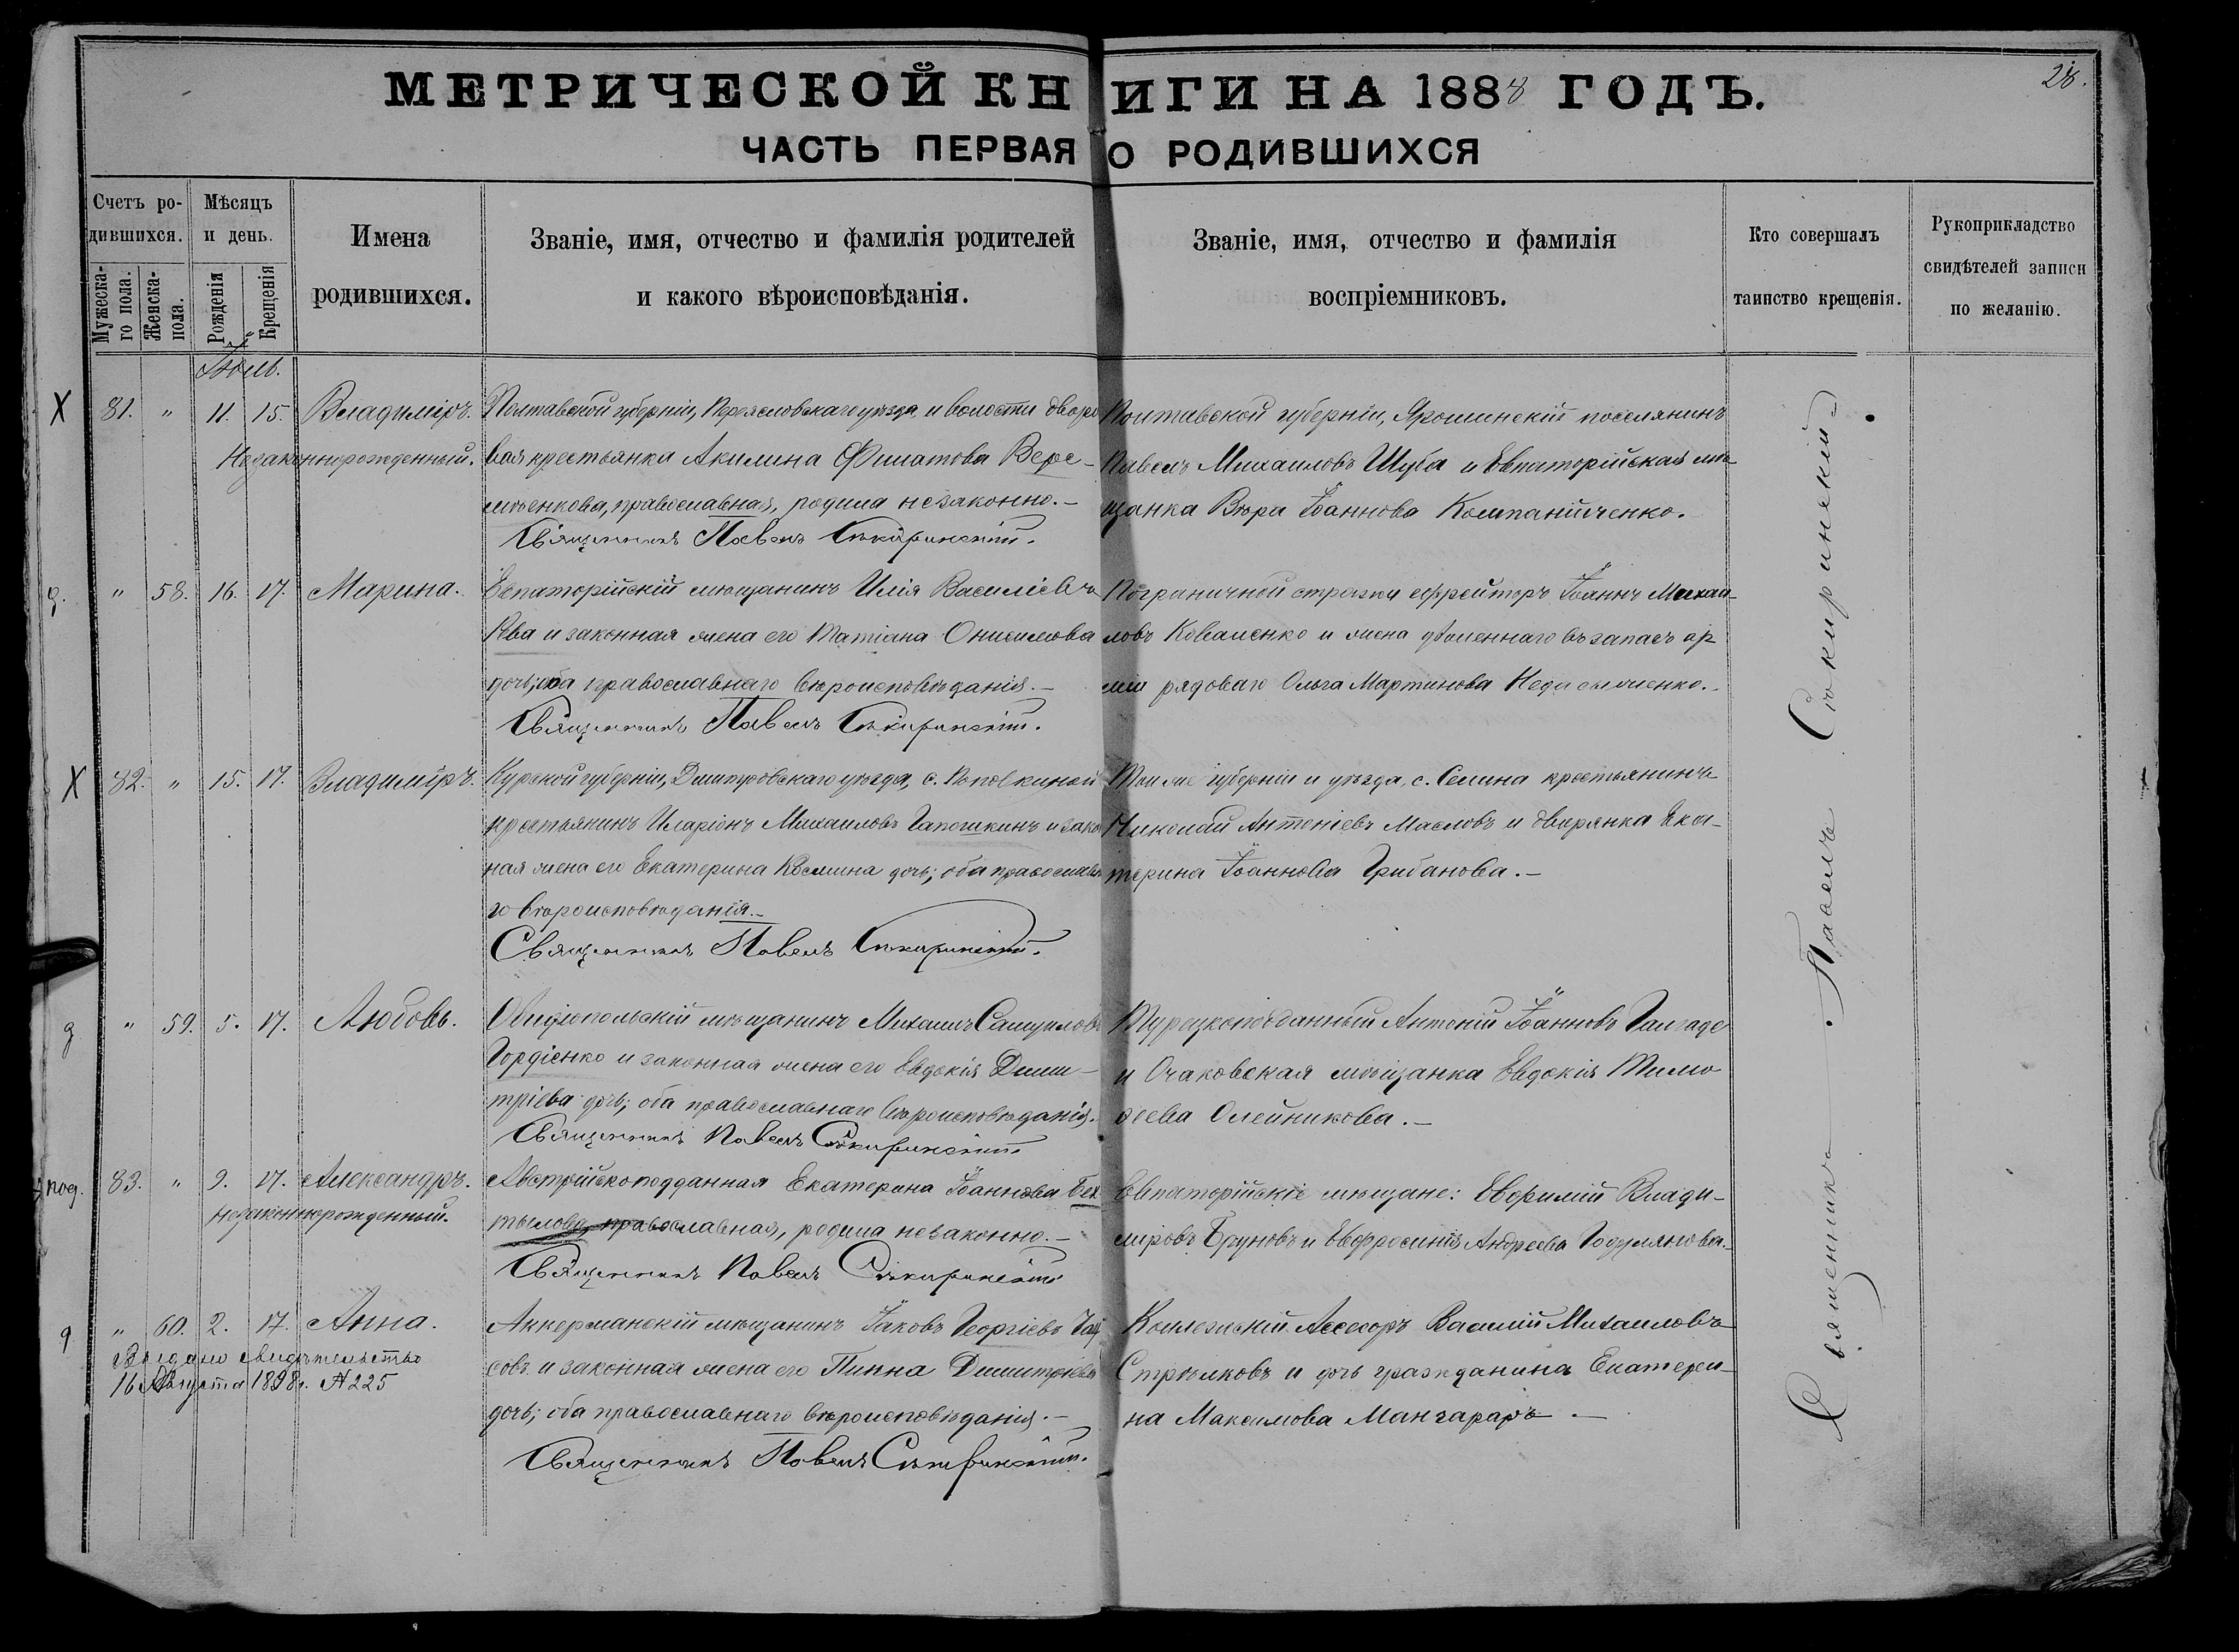 МЕТРИЧЕСКОЙ КНИГИ НА 1888 ГОДЪ.
28.
ЧАСТЬ ПЕРВАЯ О РОДИВШИХСЯ
Счетъ родившихся.
Мужескаго пола.
Женска- пола.
Мѣсяцъ и день.
Рожденія
Крещенія
Имена
родившихся.
Званіе, имя, отчество и фамилія родителей
и какого вѣроисповѣданія.
Званіе, имя, отчество и фамилія
воспріемниковъ.
Кто совершалъ
таинство крещенія.
Рукоприкладство
свидѣтелей записи
по желанію.
Іюль.
X 81. " 11. 15. Владиміръ.
Незаконнорожденный.
Полтавской губерніи, Переясловскаго уѣзда и волости дворо
вая крестьянка Акилина Филатова Вере-
меенкова, православная, родила незаконно.-
Священникъ Павелъ Сокиринскій.
Полтавской губерніи, Ярошинскій поселянинъ
Павелъ Михаиловъ Шуба и Евпаторійская мѣ-
щанка Вѣра Іоаннова Компанійченко.
" 58. 16. 17. Марина.
Евпаторійскій мѣщанинъ Илія Василіевъ
и законная жена его Татіана Онисимова
дочь; оба православнаго вѣроисповѣданія.-
Священникъ Павелъ Сокиринскій.
Пограничной стражи ефрейторъ Іоаннъ Михаи-
ловъ Коваленко и жена уволеннаго въ запасъ ар
міи рядоваго Ольга Мартинова
X 82. " 15. 17. Владиміръ.
Курской губерніи, Дмитровскаго уѣзда, с. Поповкиной
крестьянинъ Иларіонъ Михаиловъ Гапошкинъ и закон
ная жена его Екатерина Косьмина дочь; оба православна
го вѣроисповѣданія.-
Священникъ Павелъ Сокиринскій.
Той же губерніи и уѣзда, с. Селина крестьянинъ
Николай Антоніевъ Масловъ и дворянка Ека-
терина Іоаннова Грибанова.-
" 59. 5. 17. Любовь.
Овидіопольскій мѣщанинъ Михаилъ Самуиловъ
Гордіенко и законная жена его Евдокія Дими-
тріева дочь; оба православнаго вѣроисповѣданія.
Священникъ Павелъ Сокиринскій
Турецкоподданный Антоній Іоанновъ
и Очаковская мѣщанка Евдокія Тимо
ѳеева Олейникова.-
83. " 9. 17. Александръ.
Незаконнорожденный.
Австрійскоподданная Екатерина Іоаннова Бех
тылова, православная, родила незаконно.-
Священникъ Павелъ Сокиринскій
Евпаторійскіе мѣщане: Евфимій Влади-
міровъ Бруновъ и Евфросинія Андреева
" 60. 2. 17. Анна.
Выдано свидѣтельство
16 Августа 1898г. № 225
Аккерманскій мѣщанинъ Іаковъ Георгіевъ
и законная жена его Димитріева
дочь; оба православнаго вѣроисповѣданія.-
Священникъ Павелъ Сокиринскій.
Коллежскій Ассесоръ Василій Михаиловъ
Стрѣлковъ и дочь гражданина Екатери-
на Максимова
Священникъ Павелъ Сокиринскій